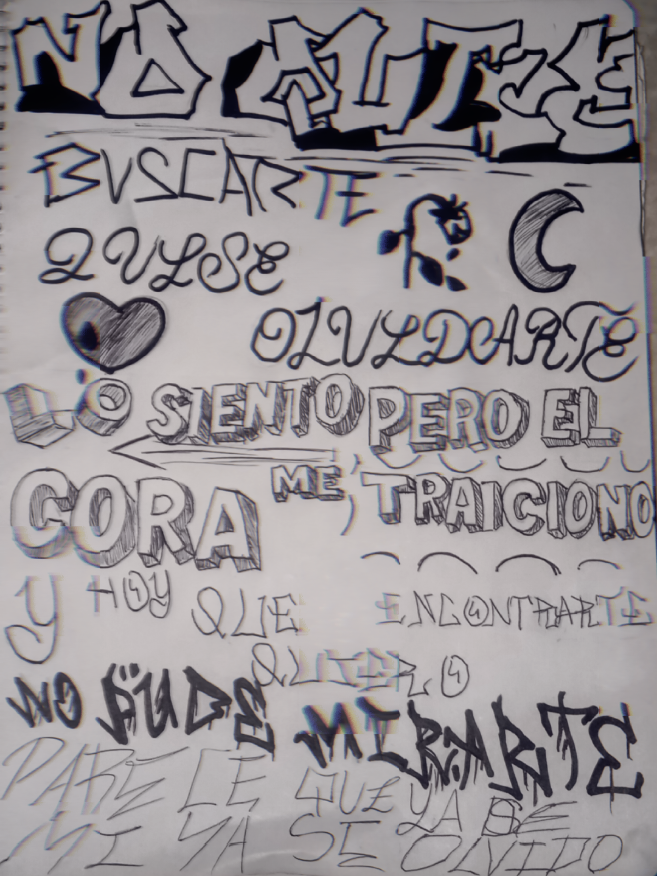 NO QUISE
BUSCARTE
QUISE
OLVIDARTE
LO SIENTO PERO EL
CORA ME TRAICIONO
Y HOY QUE
QUIERO ENCONTRARTE
NO PUDE MIRARTE
PARECE QUE YA DE
MI YA SE OLVIDO